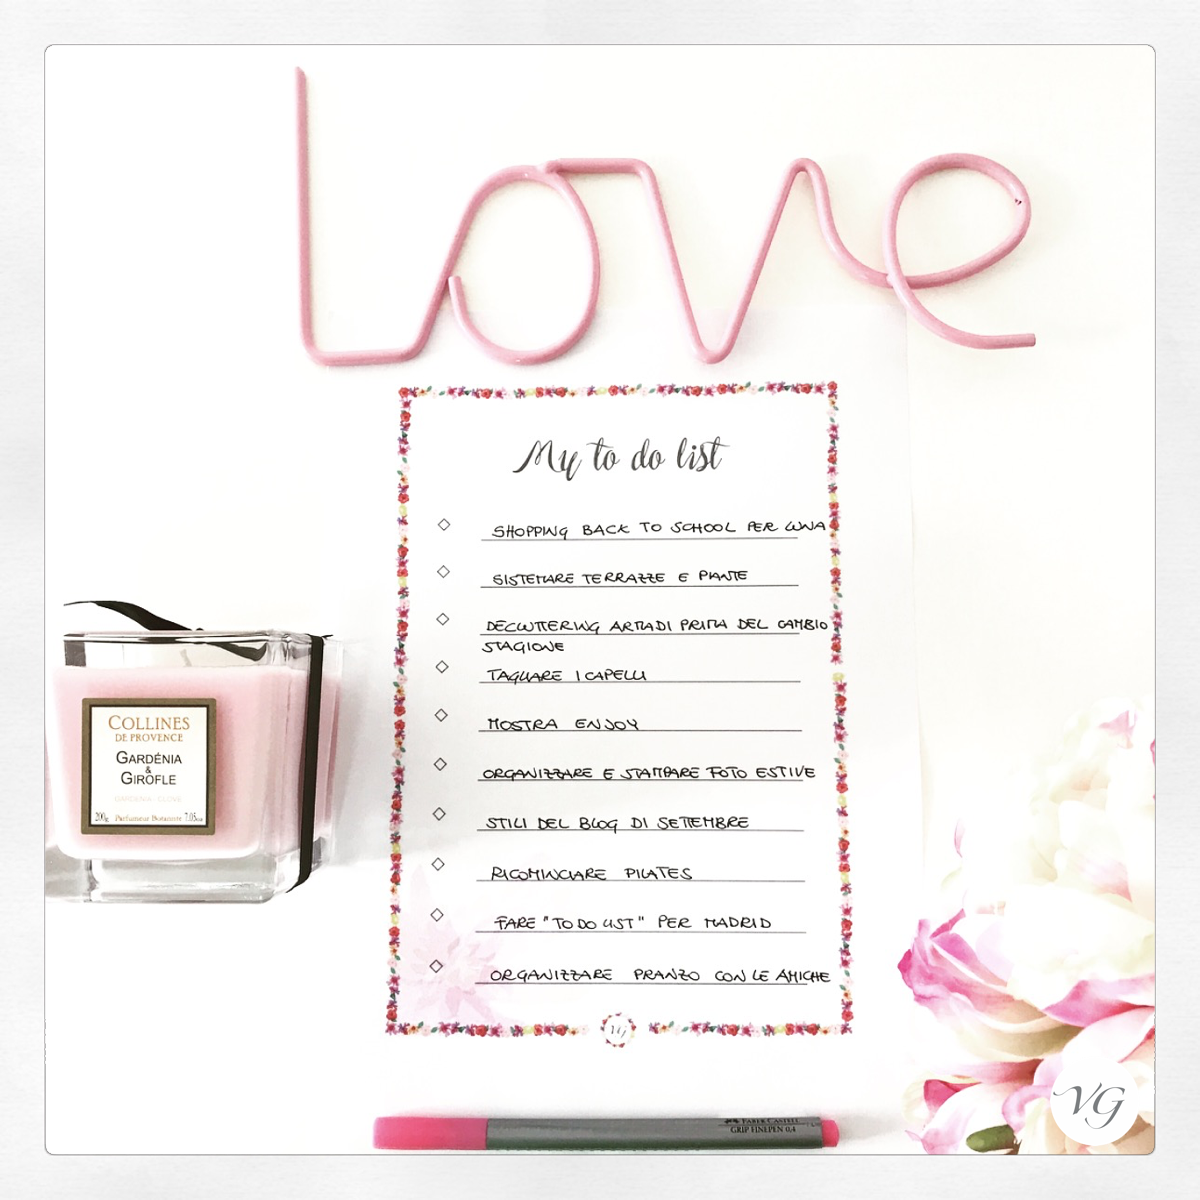 Love
My to do list
SHOPPING BACK TO SCHOOL PER LUNA
SISTEMARE TERRAZZE E PIANTE
DECLUTTERING ARMADI PRIMA DEL CAMBIO
STAGIONE
TAGLIARE I CAPELLI
MOSTRA ENJOY
ORGANIZZARE E STAMPARE FOTO ESTIVE
STILI DEL BLOG DI SETTEMBRE
RICOMINCIARE PILATES
FARE "TO DO LIST" PER MADRID
ORGANIZZARE PRANZO CON LE AMICHE
VG
COLLINES
DE PROVENCE
GARDÉNIA
&
GIROFLE
GARDENIA - CLOVE
200g Parfumeur Botaniste 7.05oz
FABER-CASTELL
GRIP FINEPEN 0,4
VG